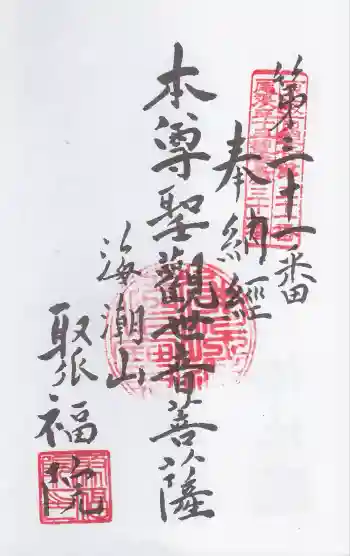 第三十一番
奉納經
本尊聖觀世音菩薩
海潮山
聚福院